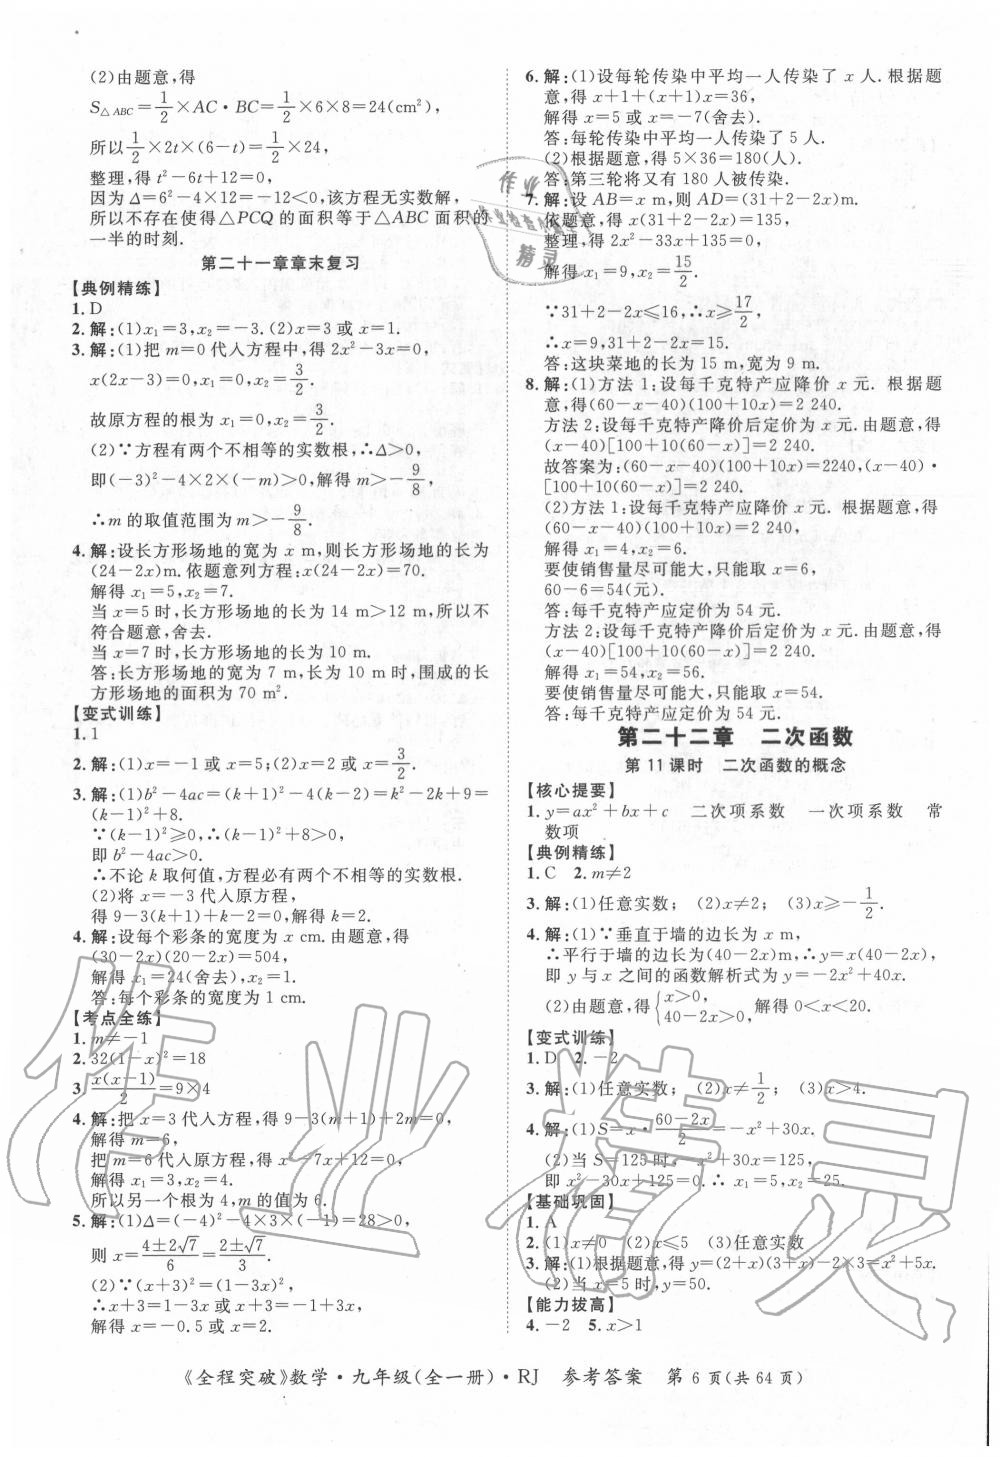 (2)由题意,得
S△ABC=1/2×AC·BC=1/2×6×8=24(cm²),
所以1/2×2t×(6-t)=1/2×24,
整理,得 t²-6t+12=0,
因为Δ=6²-4×12=-12<0,该方程无实数解,
所以不存在使得△PCQ的面积等于△ABC面积的
一半的时刻.
第二十一章章末复习
【典例精练】
1. D
2. 解:(1)x₁=3,x₂=-3.(2)x=3或x=1.
3. 解:(1)把m=0代入方程中,得2x²-3x=0,
x(2x-3)=0,x₁=0,x₂=3/2.
故原方程的根为x₁=0,x₂=3/2.
(2)∵方程有两个不相等的实数根,∴Δ>0,
即(-3)²-4×2×(-m)>0,解得m>-9/8,
∴m的取值范围为m>-9/8.
4. 解:设长方形场地的宽为x m,则长方形场地的长为
(24-2x)m.依题意列方程:x(24-2x)=70.
解得x₁=5,x₂=7.
当x=5时,长方形场地的长为14 m>12 m,所以不
符合题意,舍去.
当x=7时,长方形场地的长为10 m.
答:长方形场地的宽为7 m,长为10 m时,围成的长
方形场地的面积为70 m².
【变式训练】
1. 1
2. 解:(1)x=-1或x=5;(2)x=2或x=3/2.
3. 解:(1)b²-4ac=(k+1)²-4(k-2)=k²-2k+9=
(k-1)²+8.
∵(k-1)²≥0,∴(k-1)²+8>0.
即b²-4ac>0.
∴不论k取何值,方程必有两个不相等的实数根.
(2)将x=-3代入原方程,
得9-3(k+1)+k-2=0,解得k=2.
4. 解:设每个彩条的宽度为x cm.由题意,得
(30-2x)(20-2x)=504,
解得x₁=24(舍去),x₂=1.
答:每个彩条的宽度为1 cm.
【考点全练】
1. m≠-1
2. 32(1-x)²=18
3 x(x-1)/2=9×4
4. 解:把x=3代入方程,得9-3(m+1)+2m=0,
解得m=6,
把m=6代入原方程,得x²-7x+12=0,
解得x₁=3,x₂=4.
所以另一个根为4,m的值为6.
5. 解:(1)Δ=(-4)²-4×3×(-1)=28>0,
则x=4±2√7/6=2±√7/3;
(2)∵(x+3)²=(1-3x)²,
∴x+3=1-3x或x+3=-1+3x,
解得x=-0.5或x=2.
6. 解:(1)设每轮传染中平均一人传染了x人.根据题
意,得x+1+(x+1)x=36,
解得x=5或x=-7(舍去).
答:每轮传染中平均一人传染了5人.
(2)根据题意,得5×36=180(人).
答:第三轮将又有180人被传染.
7. 解:设AB=x m,则AD=(31+2-2x)m.
依题意,得x(31+2-2x)=135,
整理,得2x²-33x+135=0,
解得x₁=9,x₂=15/2.
∵31+2-2x≤16,∴x≥17/2,
∴x=9,31+2-2x=15.
答:这块菜地的长为15 m,宽为9 m.
8. 解:(1)方法1:设每千克特产应降价x元. 根据题
意,得(60-x-40)(100+10x)=2 240.
方法2:设每千克特产降价后定价为x元.由题意,得
(x-40)[100+10(60-x)]=2 240.
故答案为:(60-x-40)(100+10x)=2240,(x-40)·
[100+10(60-x)]=2 240.
(2)方法1:设每千克特产应降价x元. 根据题意,得
(60-x-40)(100+10x)=2 240.
解得x₁=4,x₂=6.
要使销售量尽可能大,只能取x=6,
60-6=54(元).
答:每千克特产应定价为54元.
方法2:设每千克特产降价后定价为x元.由题意,得
(x-40)[100+10(60-x)]=2 240.
解得x₁=54,x₂=56.
要使销售量尽可能大,只能取x=54.
答:每千克特产应定价为54元.
第二十二章 二次函数
第11课时 二次函数的概念
【核心提要】
1. y=ax²+bx+c 二次项系数 一次项系数 常
数项
【典例精练】
1. C 2. m≠2
3. 解:(1)任意实数; (2)x≠2; (3)x≥-1/2.
4. 解:(1)∵垂直于墙的边长为x m,
∴平行于墙的边长为(40-2x)m,∴y=x(40-2x)
即y与x之间的函数解析式为y=-2x²+40x.
(2)由题意,得{x>0, 40-2x>0, 解得0<x<20.
【变式训练】
1. D 2. -2
3. 解:(1)任意实数; (2)x≠1/2; (3)x>4.
4. 解:(1)S=x·60-2x/2=-x²+30x.
(2)当S=125时,-x²+30x=125,
即x²-30x+125=0.∴x₁=5,x₂=25.
【基础巩固】
1. A
2. (1)x≠0 (2)x≤5 (3)任意实数
3. 解:(1)根据题意,得y=(2+x)(3+x)-2×3=x²+5x.
(2)当x=5时,y=50.
【能力拔高】
4. -2 5. x>1
《全程突破》数学·九年级(全一册)·RJ 参考答案 第6页(共64页)
作业精灵